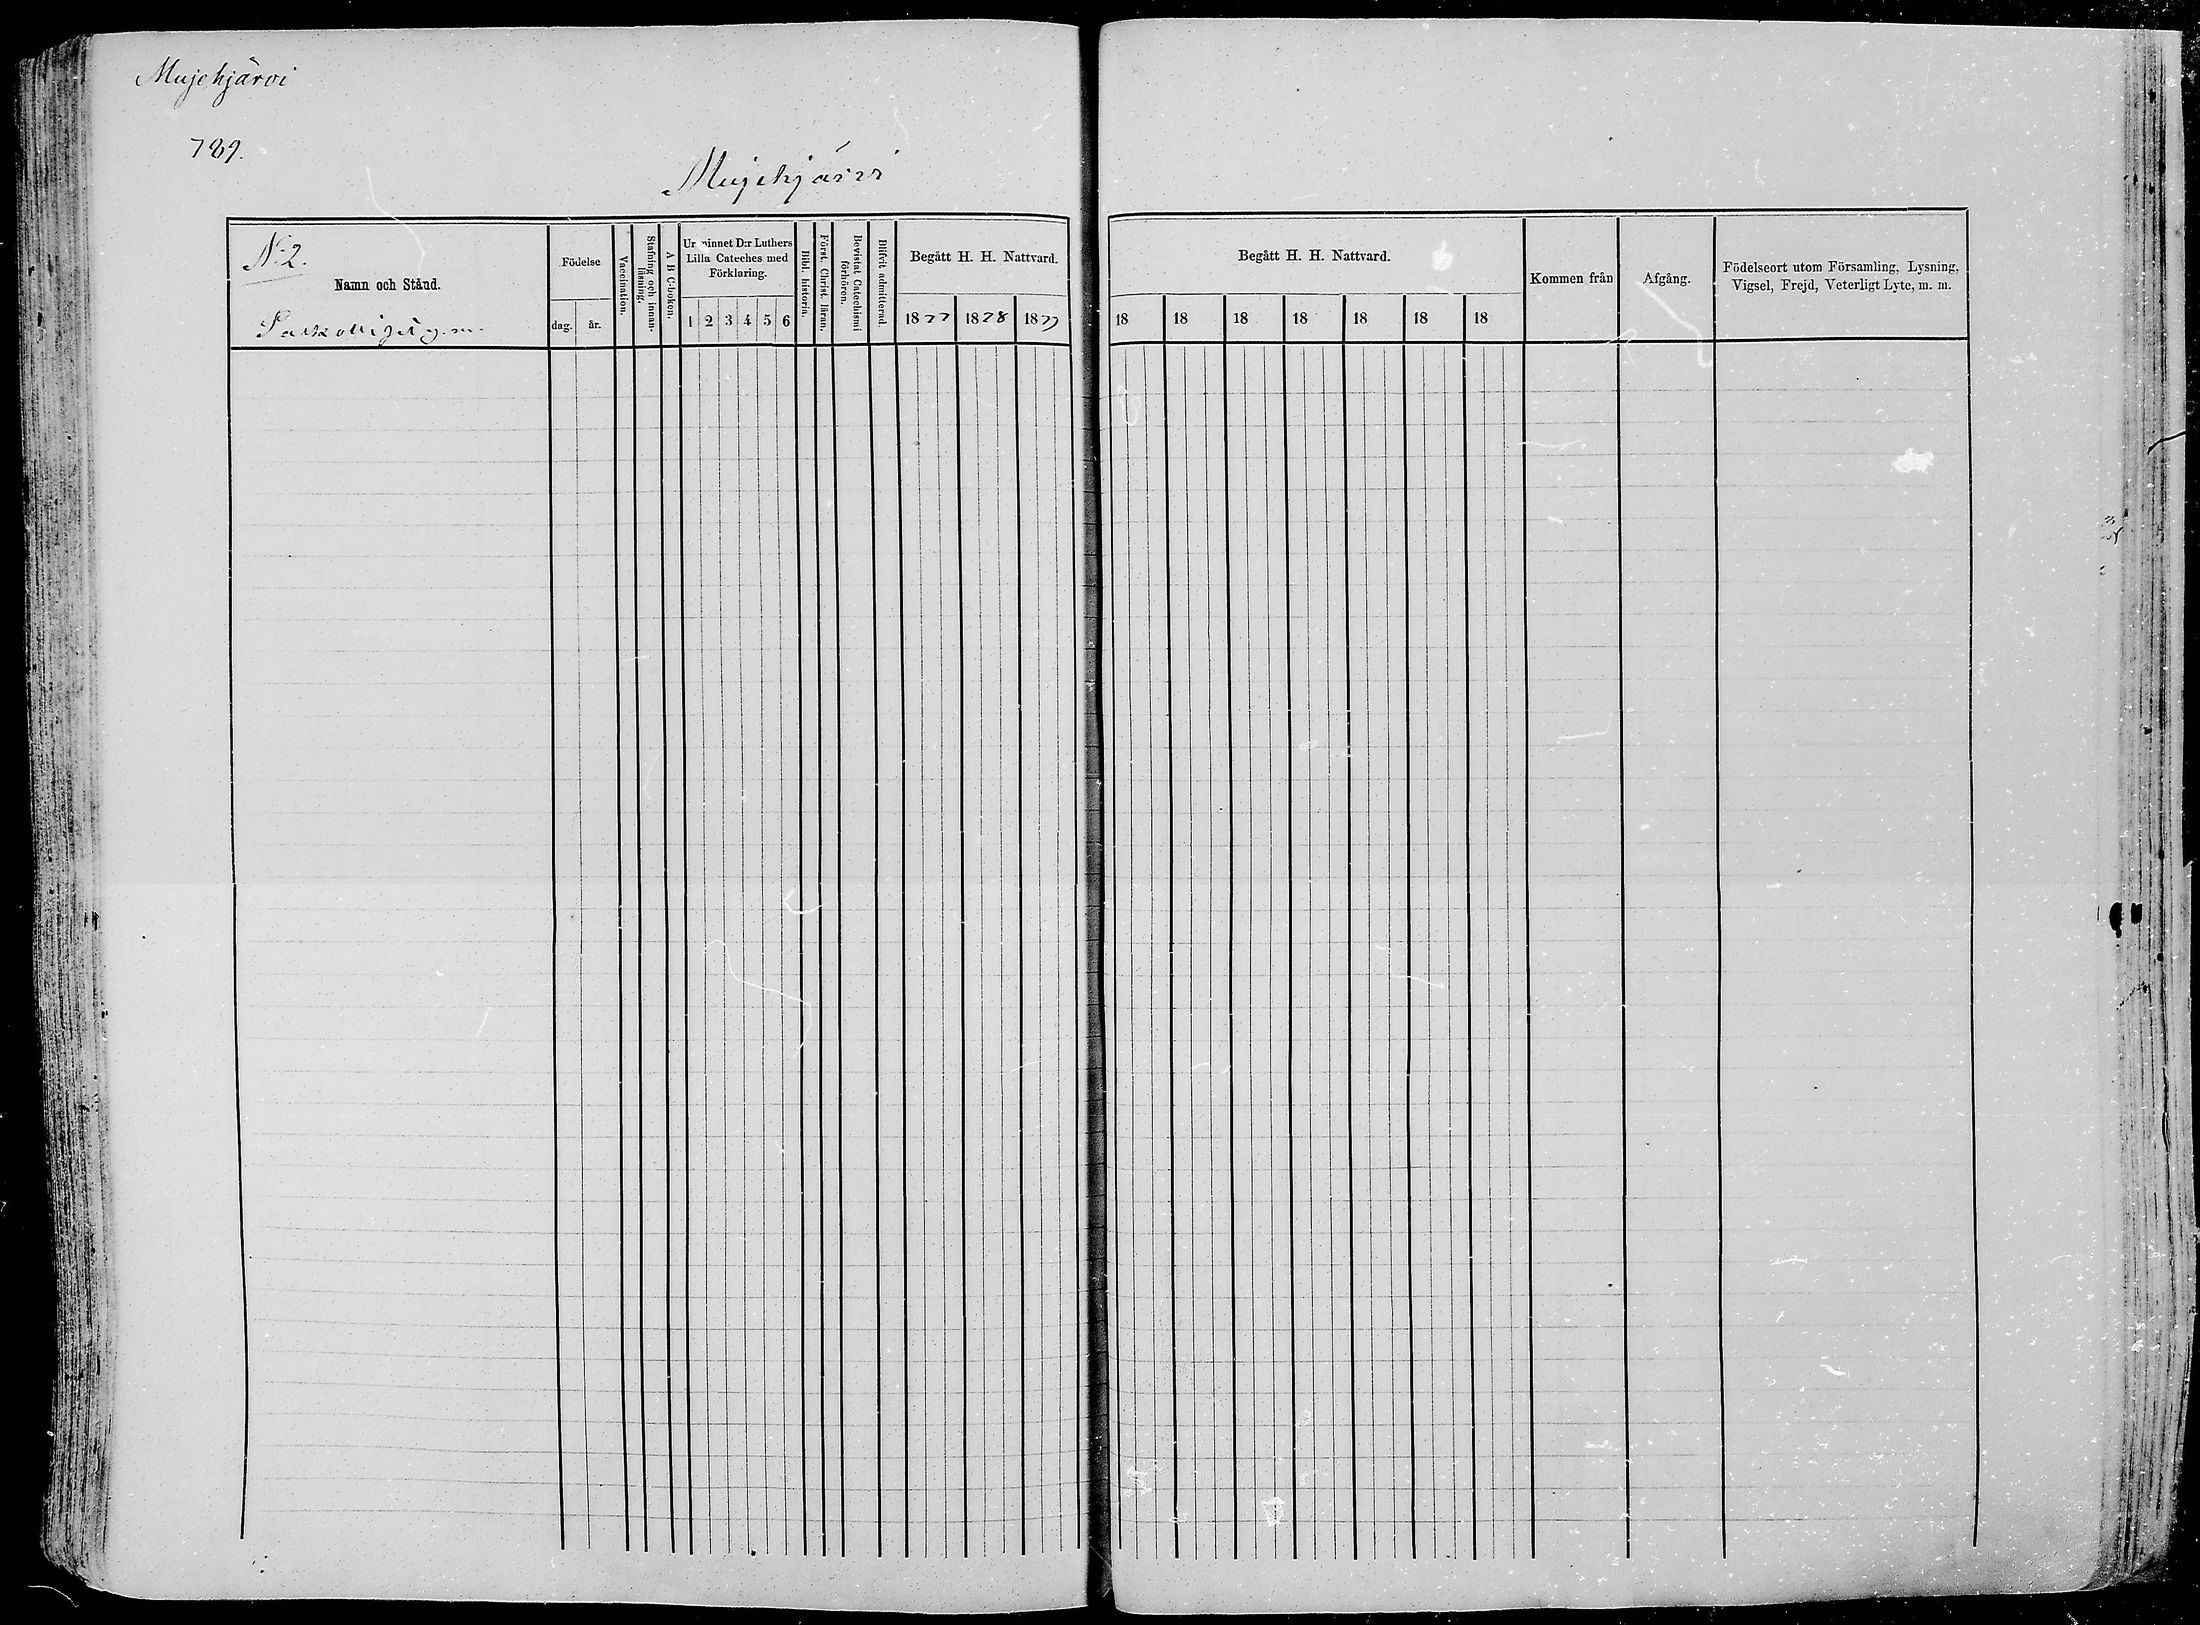 Mujehjärvi
789.
Mujehjärvi
N:2.
Namn och Stånd.
Födelse
dag. år.
Vaccination.
Stafning och innan-läsning.
A B C-boken.
Ur minnet D:r Luthers
Lilla Cateches med
Förklaring.
1 2 3 4 5 6
Bibl. historia.
Först. Christ. läran.
Bevistat Catechismi förhören.
Blifvit admitterad.
Begått H. H. Nattvard.
1877 1878 1879
Begått H. H. Nattvard.
18 18 18 18 18 18 18
Kommen från
Afgång.
Födelseort utom Församling, Lysning,
Vigsel, Frejd, Veterligt Lyte, m. m.